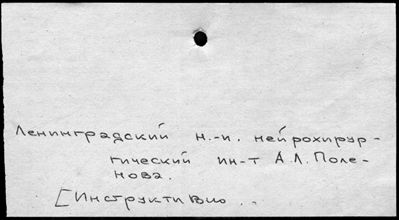 Ленинградский н.-и. нейрохирур-
гический ин-т А.Л. Поле-
нова.
[Инструктивно..